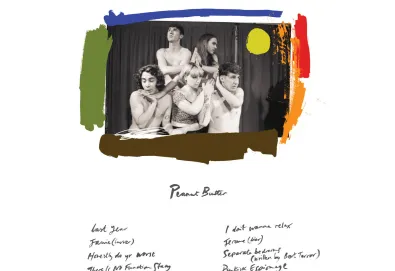 Peanut Butter
Last Year
Jamie (inner)
Honestly do yr worse
There Is No Function Stacy
I don't wanna relax
Jerome (liar)
Separate bedrooms
(written by Best Terror)
Pinkish Espionage